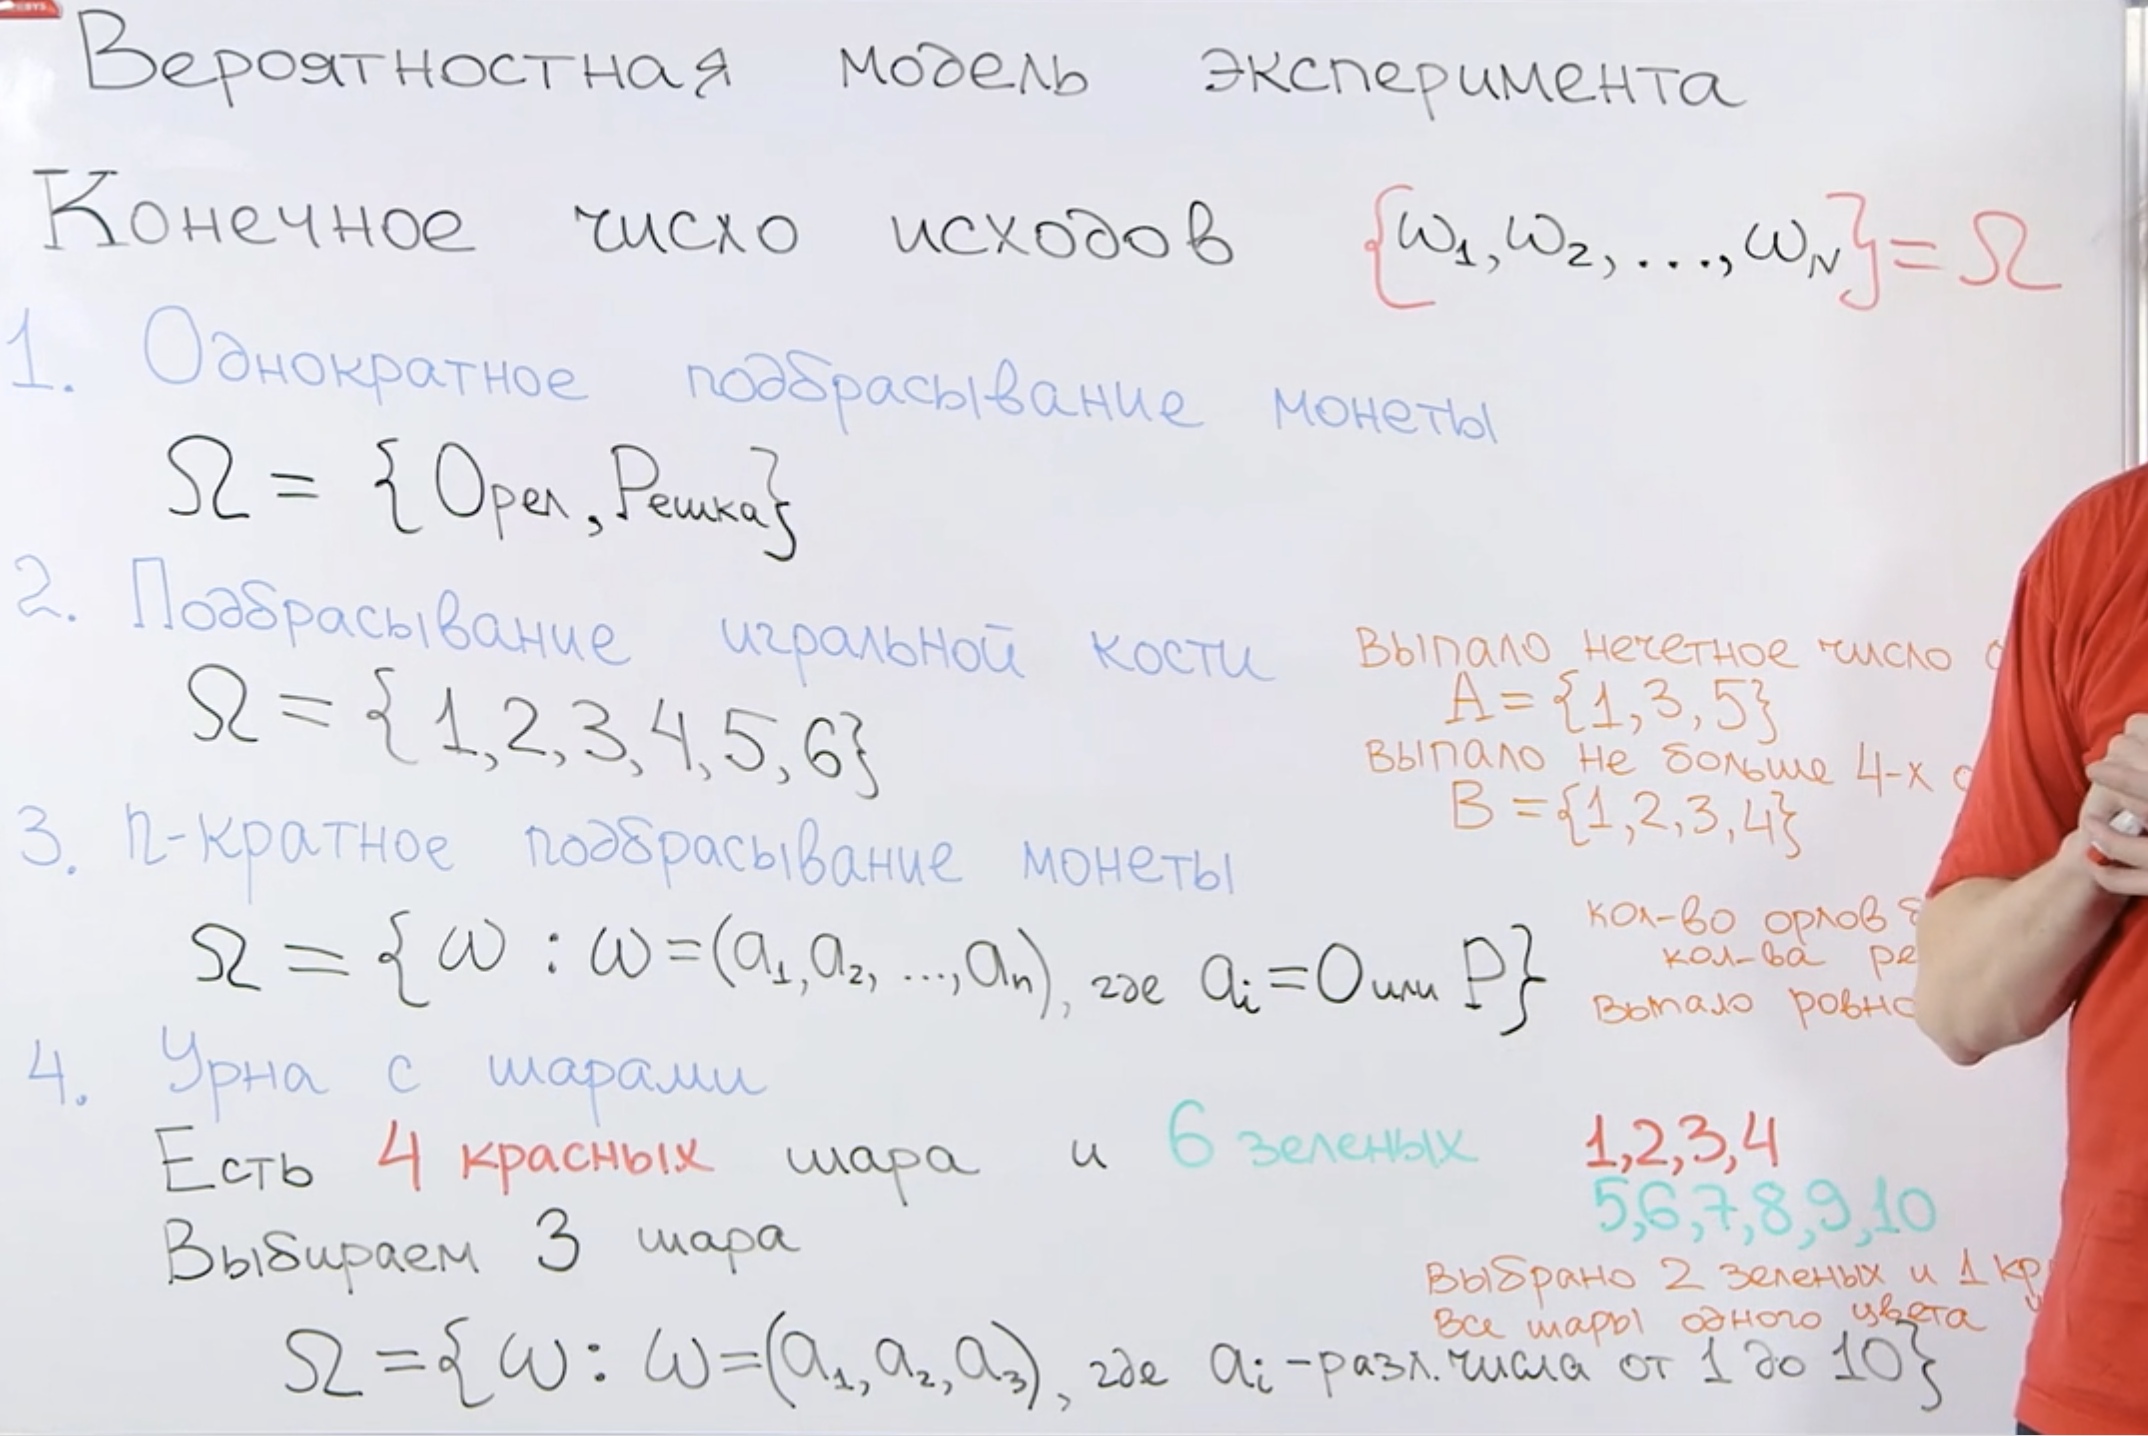 Вероятностная модель эксперимента
Конечное число исходов {ω₁, ω₂, ..., ω_N} = Ω
1. Однократное подбрасывание монеты
Ω = {Орел, Решка}
2. Подбрасывание игральной кости
Ω = {1,2,3,4,5,6}
Выпало нечетное число
A = {1,3,5}
Выпало не больше 4-х
B = {1,2,3,4}
3. n-кратное подбрасывание монеты
Ω = {ω : ω=(a₁,a₂, ...,aₙ), где aᵢ=О или Р}
кол-во орлов
кол-ва
Выпало
4. Урна с шарами
Есть 4 красных шара и 6 зеленых
1,2,3,4
5,6,7,8,9,10
Выбираем 3 шара
Выбрано 2 зеленых и 1
Все шары одного цвета
Ω = {ω : ω=(a₁,a₂,a₃), где aᵢ - разл. числа от 1 до 10}